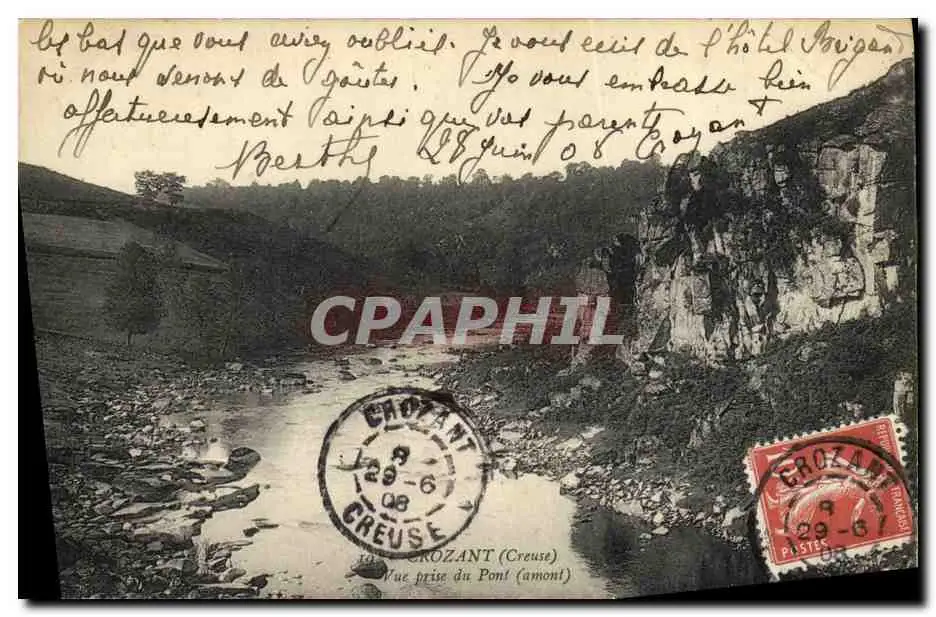 là bas que vous aviez oubliés. Je vous écris de l'hôtel Brigand
où nous venons de goûter. Je vous embrasse bien
affectueusement ainsi que vos parents
Berthe 28 Juin 08 Crozant
CPAPHIL
CROZANT
8
29-6
08
CREUSE
CROZANT
8
29-6
08
POSTES
CROZANT (Creuse)
Vue prise du Pont (amont)